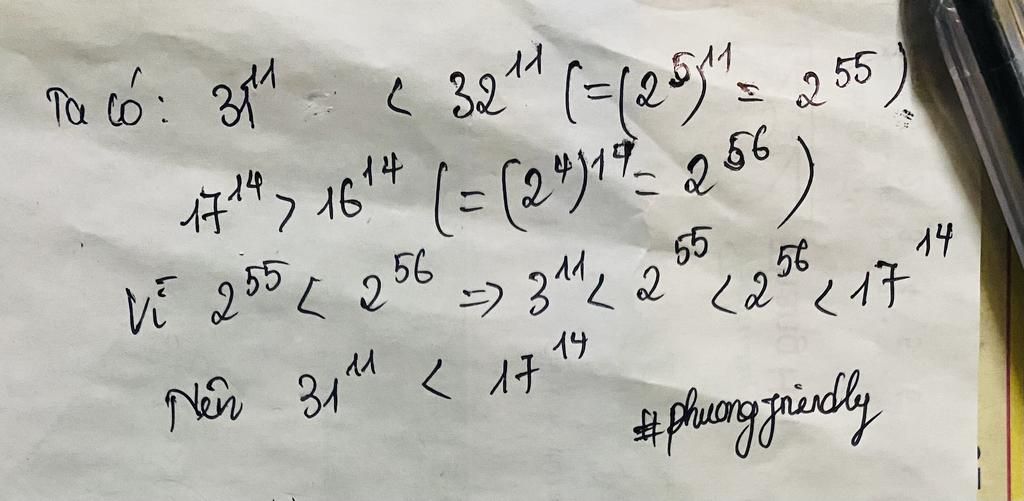 Ta có: 31¹¹ < 32¹¹ (=(2⁵)¹¹ = 2⁵⁵)
17¹⁴ > 16¹⁴ (=(2⁴)¹⁴ = 2⁵⁶)
Vì 2⁵⁵ < 2⁵⁶ => 3¹¹ < 2⁵⁵ < 2⁵⁶ < 17¹⁴
Nên 31¹¹ < 17¹⁴
#phuongfriendly